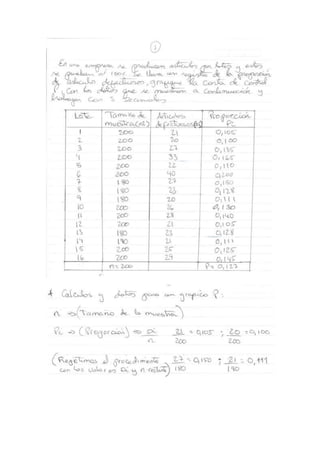 ①
En una empresa se producen artículos por lotes y estos
se prueban al 100%. Se lleva un registro de la proporción
de artículos defectuosos, grafique la carta de control
P, con los datos que se muestran a continuación y
Lote Tamaño de muestra(n) Artículos defectuosos Proporción Pc
1 200 21 0,105
2 200 20 0,100
3 200 27 0,135
4 200 33 0,165
5 200 22 0,110
6 200 40 0,200
7 180 27 0,150
8 180 23 0,128
9 180 20 0,111
10 200 26 0,130
11 200 28 0,140
12 200 21 0,105
13 180 23 0,128
14 190 21 0,111
15 200 25 0,125
16 200 29 0,145
n = 200 P = 0,127
* Calculos y datos para un grafico P:
n → (Tamaño de la muestra)
Pc → (Proporción) → Di/n 21/200 = 0,105 ; 20/200 = 0,100
(Repetimos el procedimiento 27/180 = 0,150 ; 21/190 = 0,111
con los valores Di y n)